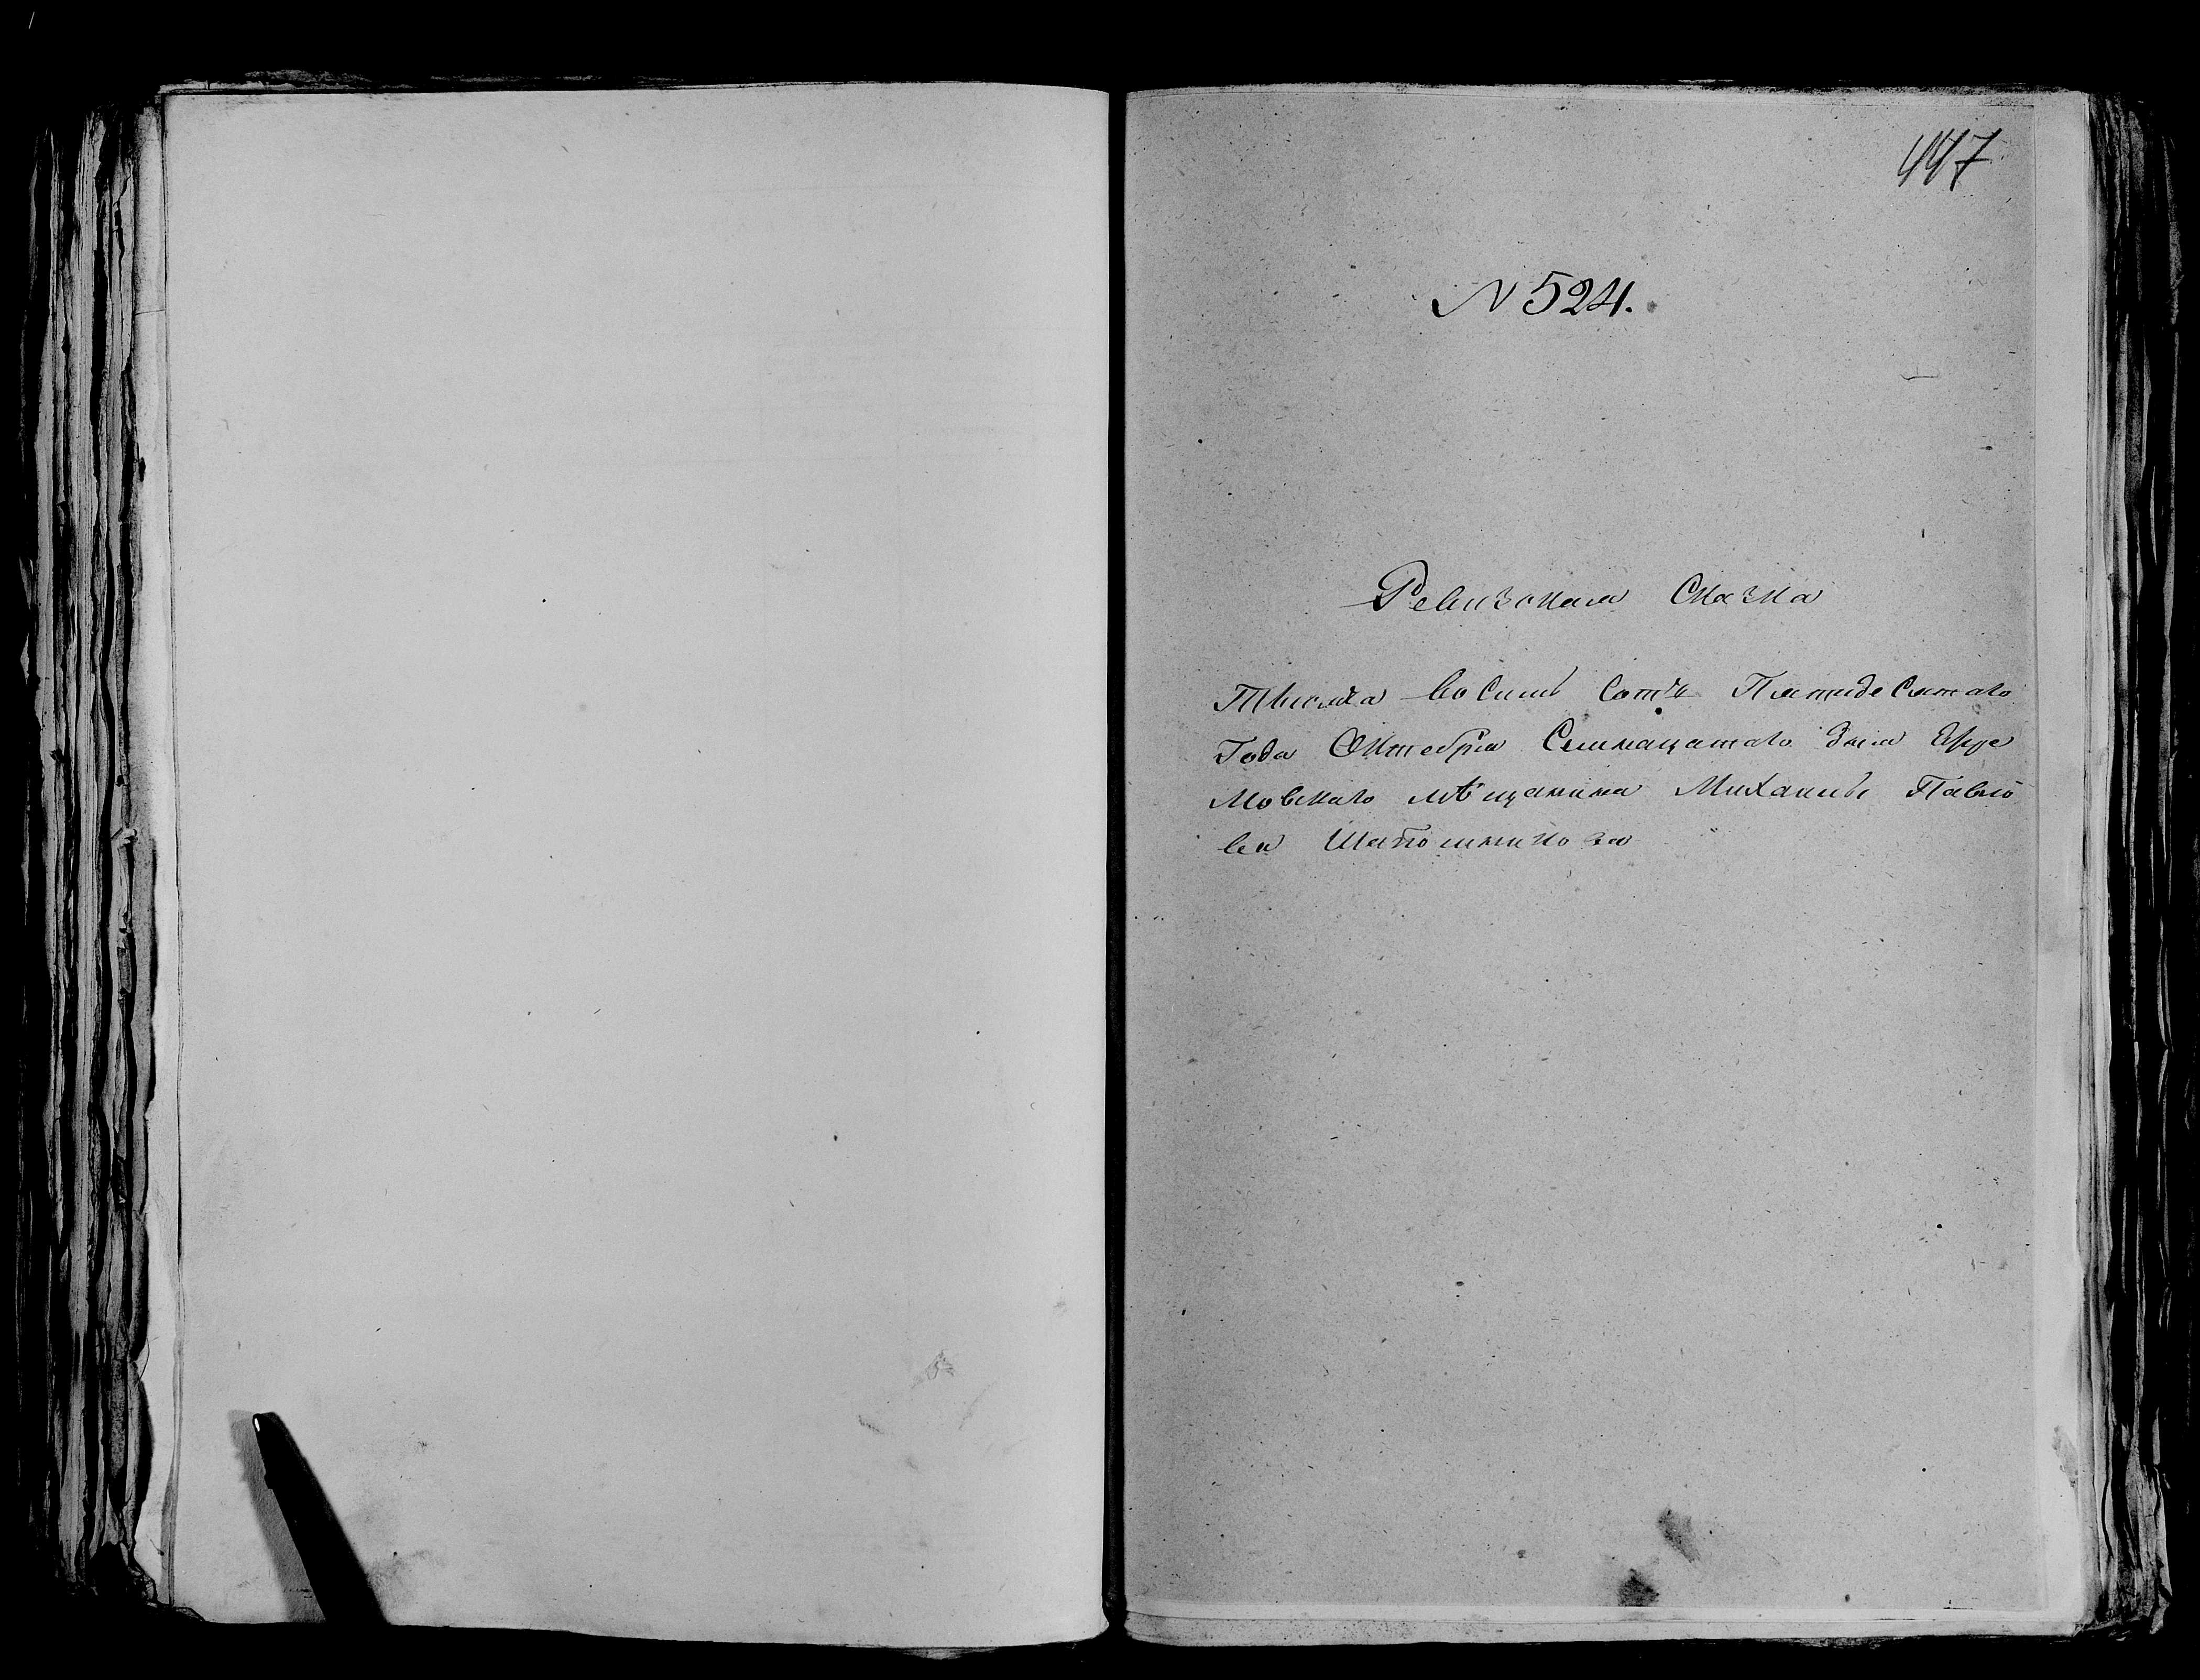 447
N 524.
Ревизская Сказка
Тысяча Восимь Сотъ Пятидесятаго
Года Октебря Семнацатаго дня Ефре
мовскаго мѣщанина Михаилы Павло
ва Шапошникова